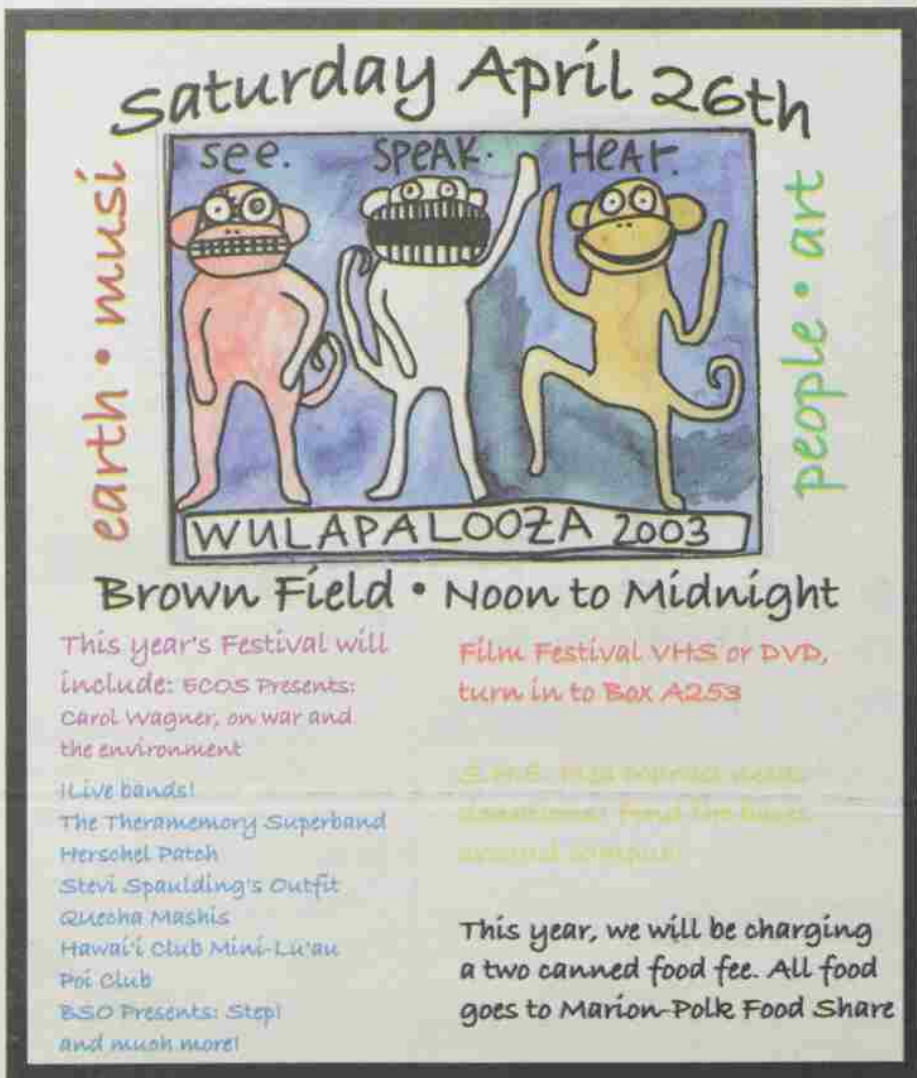 Saturday April 26th
earth • musi
people • art
see. SPEAK. HEAR.
WULAPALOOZA 2003
Brown Field • Noon to Midnight
This year's Festival will
include: ECOS Presents:
Carol Wagner, on war and
the environment
!Live bands!
The Theramemory Superband
Herschel Patch
Stevi Spaulding's Outfit
Quecha Mashis
Hawai'i Club Mini-Lu'au
Poi Club
BSO Presents: Step!
and much more!
Film Festival VHS or DVD,
turn in to Box A253
donations! Find the boxes
around campus!
This year, we will be charging
a two canned food fee. All food
goes to Marion-Polk Food Share